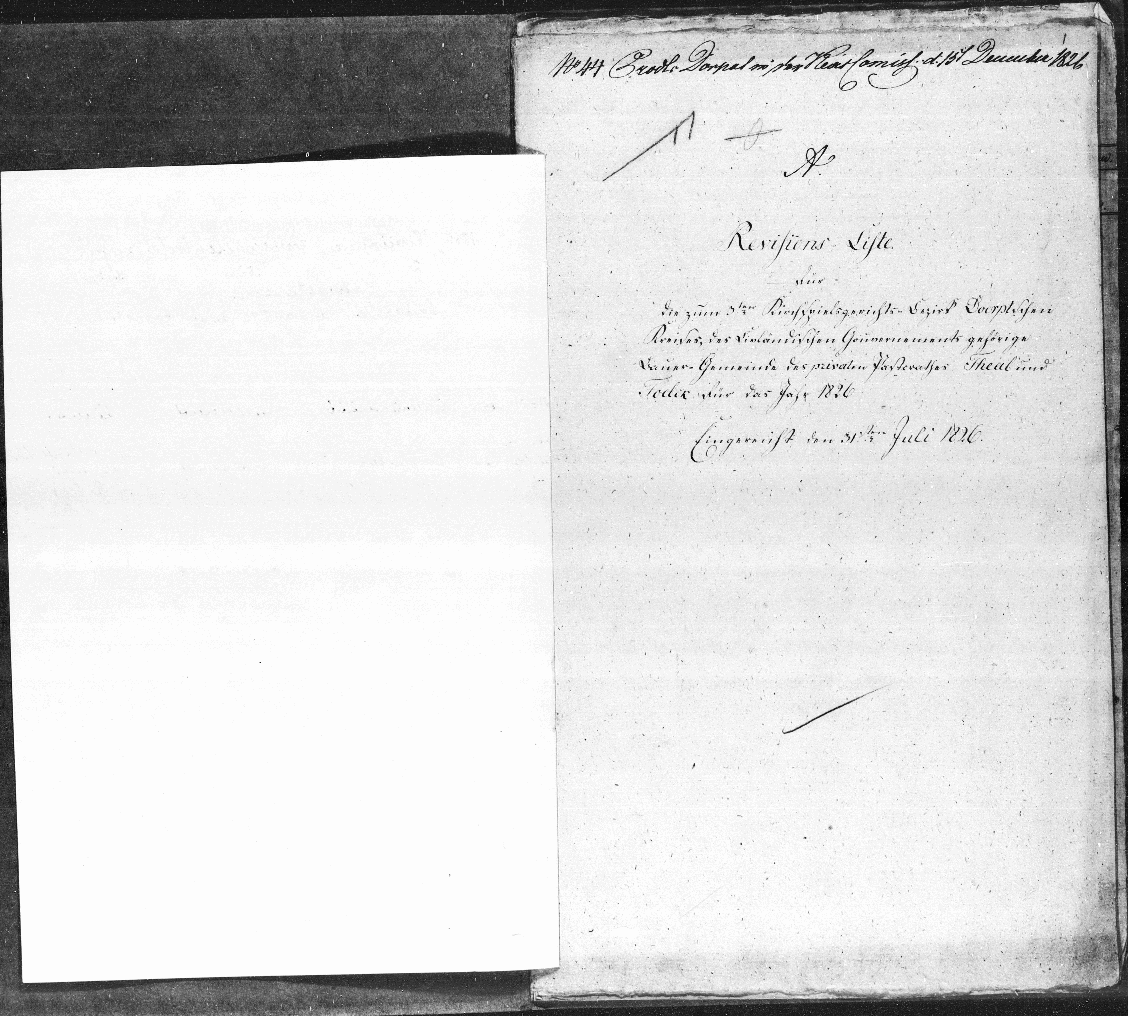 No 44 Prodl: Dorpat in der Revis: Comiss: d. 15t December 1826
1
A.
Revisions-Liste
für
die zum 3ten Kirchspielsgerichts-Bezirk Doerptschen
Kreises, des Livländischen Gouvernements gehörige
Bauer-Gemeinde des privaten Pastorathes Theal und
Foelix für das Jahr 1826
Eingereicht den 31ten Juli 1826.